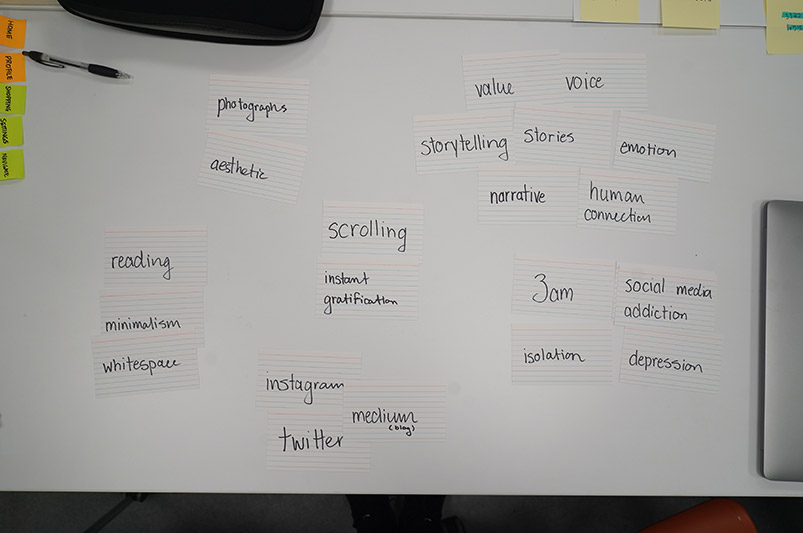 HOME
PROFILE
SHOPPING
SETTINGS
photographs
aesthetic
value
voice
storytelling
stories
emotion
narrative
human
connection
scrolling
instant
gratification
reading
minimalism
whitespace
3am
social media
addiction
isolation
depression
instagram
medium
(blog)
twitter